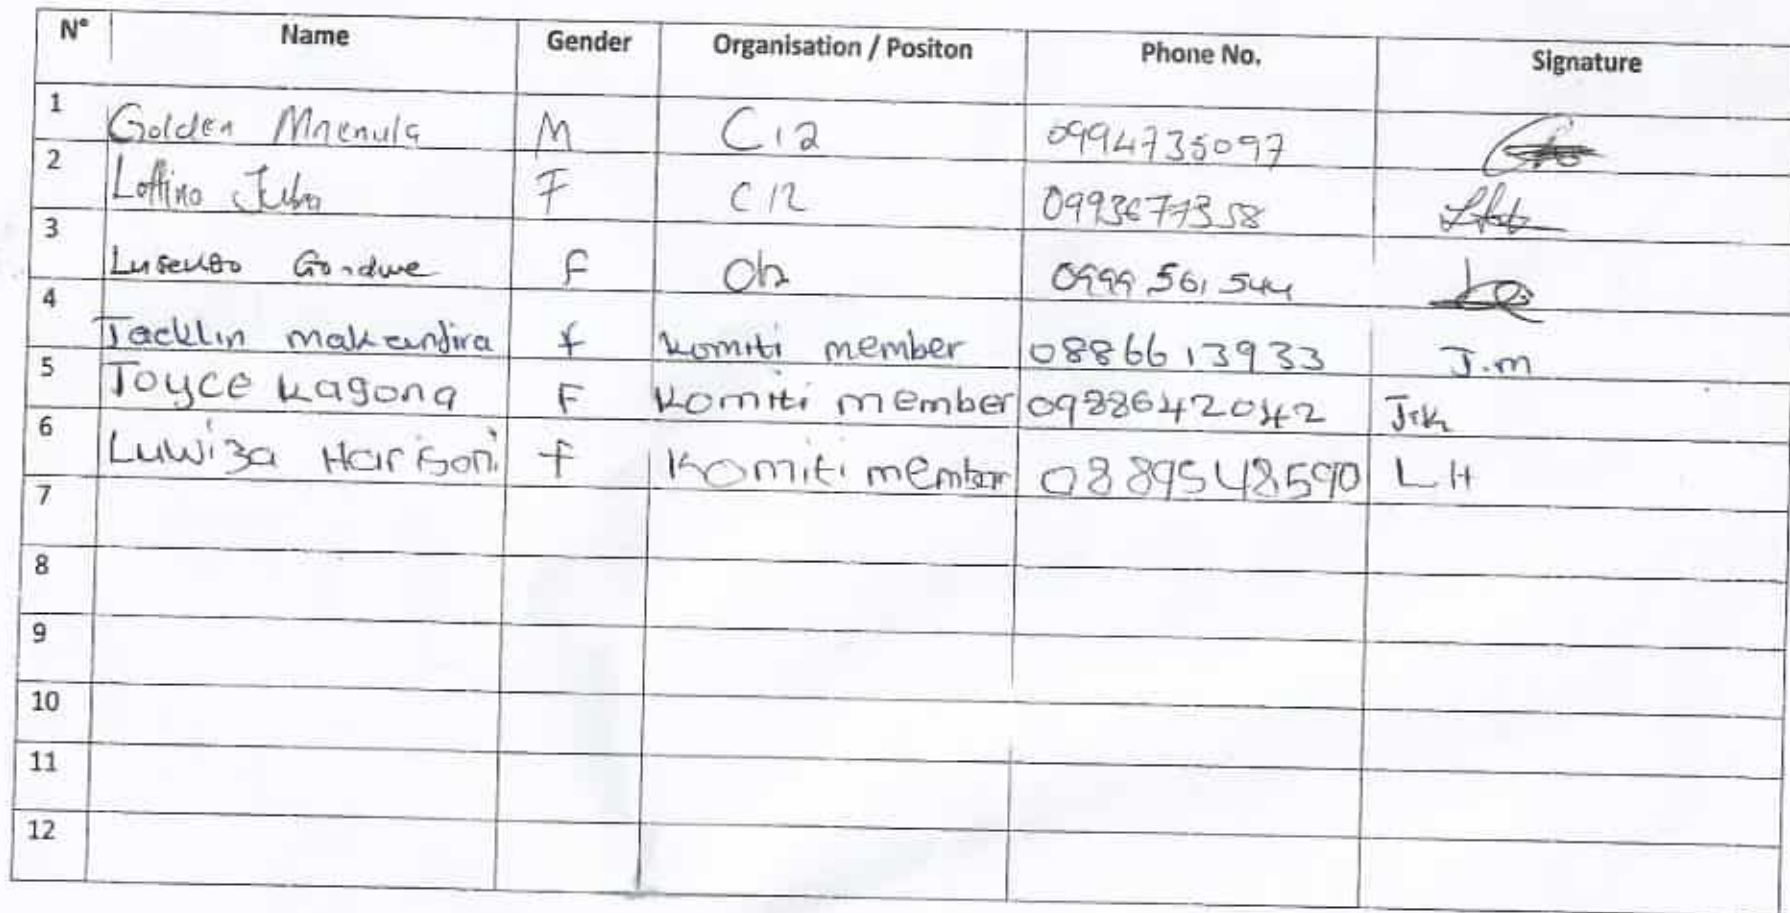 N° Name Gender Organisation / Positon Phone No. Signature
1 Golden Mnenula M C12 0994735097
2 Loffino Juba F C12 0993677358
3 Lusenso Gondwe F 0999 561 544
4 Jacklin makandira f komiti member 0886613933 J.m
5 Joyce kagona F komiti member 0988642042 J.k
6 Luwiza Harisoni f komiti member 0889548590 L H
7
8
9
10
11
12